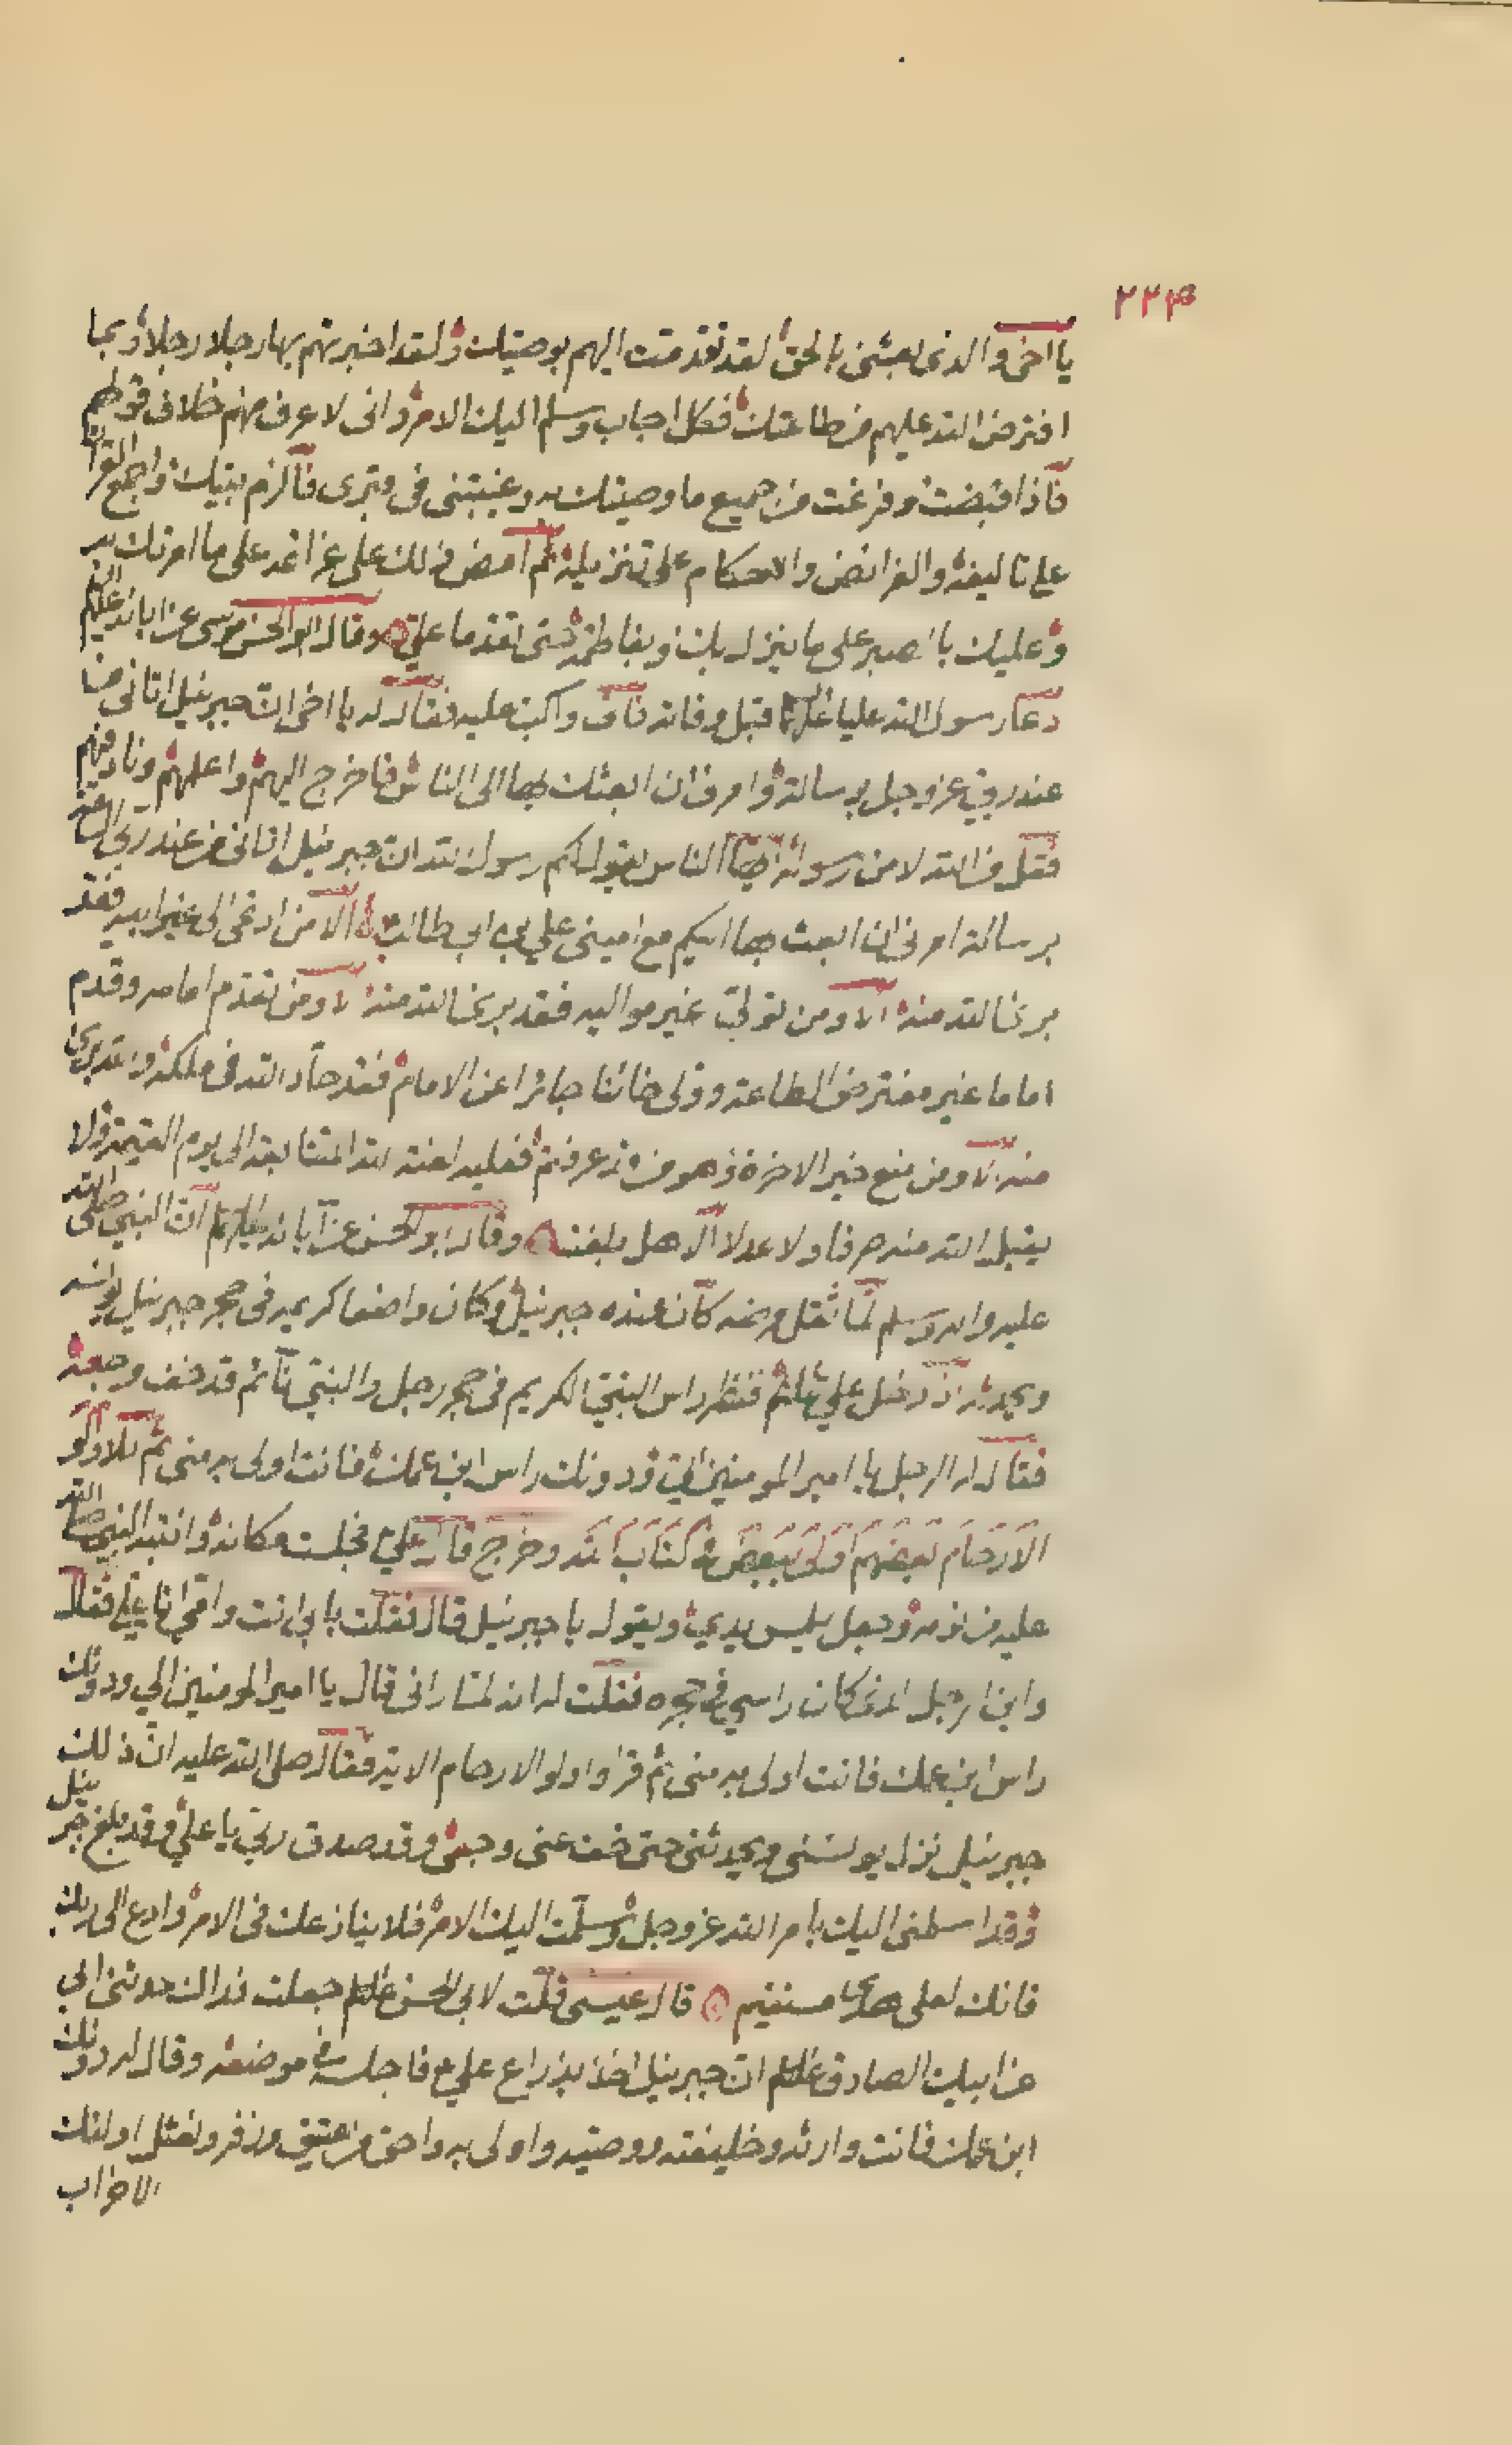 ٢٢٣
يا اخى والذى بعثنى بالحق لقد تقدمت اليهم بوصيتك ولقد اخبرتهم بها رجلا رجلا وبما
افترض الله عليهم من طاعتك فكل اجاب وسلم اليك الامر وانى لاعرف منهم خلاف قولهم
فاذا قبضت وفرغت من جميع ما وصيتك به وغيبتنى فى قبرى فالزم بيتك واجمع القران
على تاليفه والفرائض والاحكام على تنزيله ثم امض ذلك على عزائمه على ما امرتك به
وعليك بالصبر على ما ينزل بك وبفاطمة حتى تقدما على وقال ابو الحسن موسى عن ابائه عليهم
دعا رسول الله عليا عليهما قبل وفاته فاق واكب عليه فقال له يا اخى ان جبرئيل اتانى من
عند ربى عز وجل برسالة وامرنى ان ابعثك بها الى الناس فاخرج اليهم واعلمهم وناد فيهم
فقل من الله لا من رسوله ايها الناس يقول لكم رسول الله ان جبرئيل اتانى من عند ربى
برسالة امرنى ان ابعث بها اليكم مع امينى على بن ابى طالب الا من ادعى الى غير ابيه فقد
برئ الله منه الا ومن تولى غير مواليه فقد برئ الله منه الا ومن تقدم امامه وقدم
اماما غير مفترض الطاعة وولى خائنا جائرا عن الامام فقد حاد الله فى ملكه والله برى
منه الا ومن منع خير الاخرة وهو من عرفتم فعليه لعنة الله المتتابعة الى يوم القيمة ولا
يقبل الله منه صرفا ولا عدلا الا هل بلغت وقال ابو الحسن عن ابائه عليهم ان النبى صلى الله
عليه واله وسلم لما ثقل مرضه كان عنده جبرئيل وكان واضعا كريمه فى حجر جبرئيل يونسه
ويحدثه اذ دخل على عليهم فنظر راس النبى الكريم فى حجر رجل والنبى نائم قد خف وجعه
فقال له الرجل يا امير المومنين الى ودونك راس ابن عمك فانت اولى به منى ثم تلا واولو
الارحام بعضهم اولى ببعض فى كتاب الله وخرج قال على فجلست مكانه وانتبه النبى صلى الله
عليه من نومه وجعل يلمس يدي ويقول يا جبرئيل قال فقلت بابى انت وامى انا على فقال
واين الرجل الذى كان راسى فى حجره فقلت له انه لما رانى قال يا امير المومنين الى ودونك
راس ابن عمك فانت اولى به منى ثم قرا واولو الارحام الاية فقال صلى الله عليه ان ذلك
جبرئيل نزل يونسنى ويحدثنى حتى خف عنى وجعى وقد صدق ربى يا على وقد بلغ جبرئيل
وقد اسلمنى اليك بامر الله عز وجل وسلمت اليك الامر فلا ينازعك فى الامر وادع الى ربك
فانك لعلى هدى مستقيم قال عيسى قلت لابى الحسن عليهم جعلت فداك حدثنى ابى
عن ابيك الصادق عليهم ان جبرئيل اخذ بذراع على ع فاجلسه فى موضعه وقال له دونك
ابن عمك فانت وارثه وخليفته ووصيه واولى به واحق من عتيق وزفر ونعثل اولئك
الاحزاب